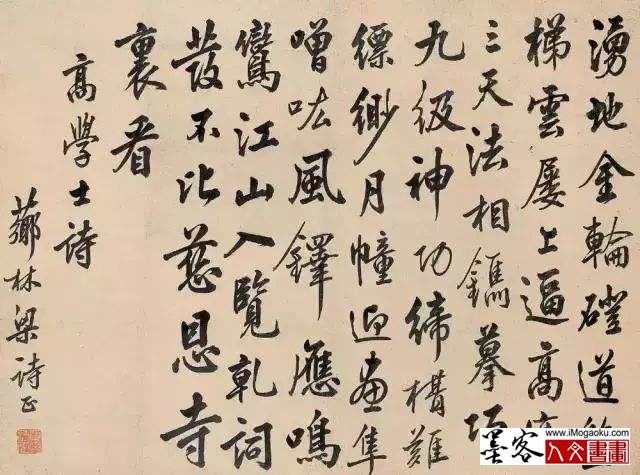 湧地金輪磴道
梯雲屢上逼高
三天法相鐫摹
九級神功締構難
縹緲月幢迎畫隼
噌吰風鐸應鳴
鸞江山入覽詞
發不比慈恩寺
裏看
高學士詩
薌林梁詩正
www.iMogaoku.com
墨客
人文書畫